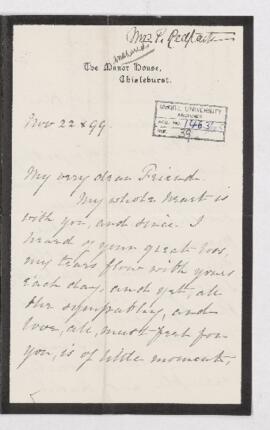 Mrs P. Redpath
answered
The Manor House,
Chislehurst.
Nov 22 / 99.
McGILL UNIVERSITY
ARCHIVES
ACC. NO. 1463
REF. 39
My very dear Friend.
My whole heart is
with you, and since I
heard of your great loss,
my tears flow with yours
each day, and yet, all
the sympathy, and
love, all, must feel for
you, is of little moment,